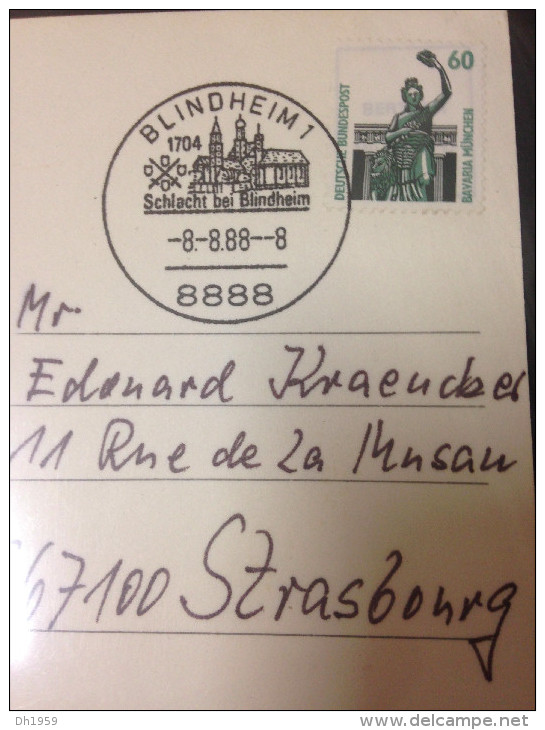 BLINDHEIM 1
1704
Schlacht bei Blindheim
-8.-8.88--8
8888
60
DEUTSCHE BUNDESPOST
BAVARIA MÜNCHEN
Mr
Edouard Kraencker
11 Rue de La Musau
67100 Strasbourg
Dh1959
www.delcampe.net